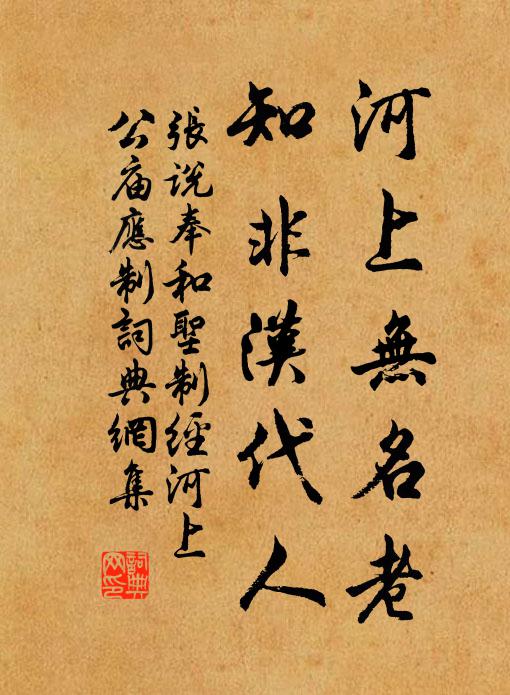 河上無名老
知非漢代人
張說奉和聖制經河上
公庙應制詞典網集
詞典
网印